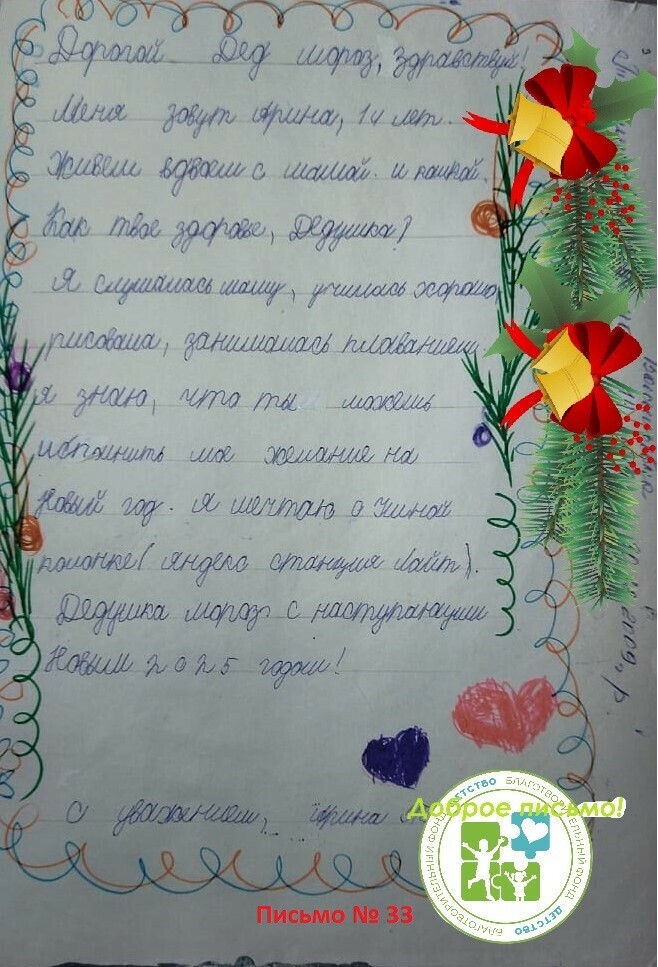 Дорогой Дед мороз, здравствуй!
Меня зовут Арина, 14 лет.
Живем вдвоем с мамой и кошкой.
Как твое здоровье, Дедушка?
Я слушалась маму, училась хорошо,
рисовала, занималась плаванием.
Я знаю, что ты можешь
исполнить мое желание на
Новый год. Я мечтаю о умной
колонке (яндекс станция Лайт).
Дедушка мороз с наступающим
Новым 2025 годом!
С уважением, Арина
Доброе письмо!
БЛАГОТВОРИТЕЛЬНЫЙ ФОНД ДЕТСТВО
БЛАГОТВОРИТЕЛЬНЫЙ ФОНД ДЕТСТВО
Письмо № 33
2009 р